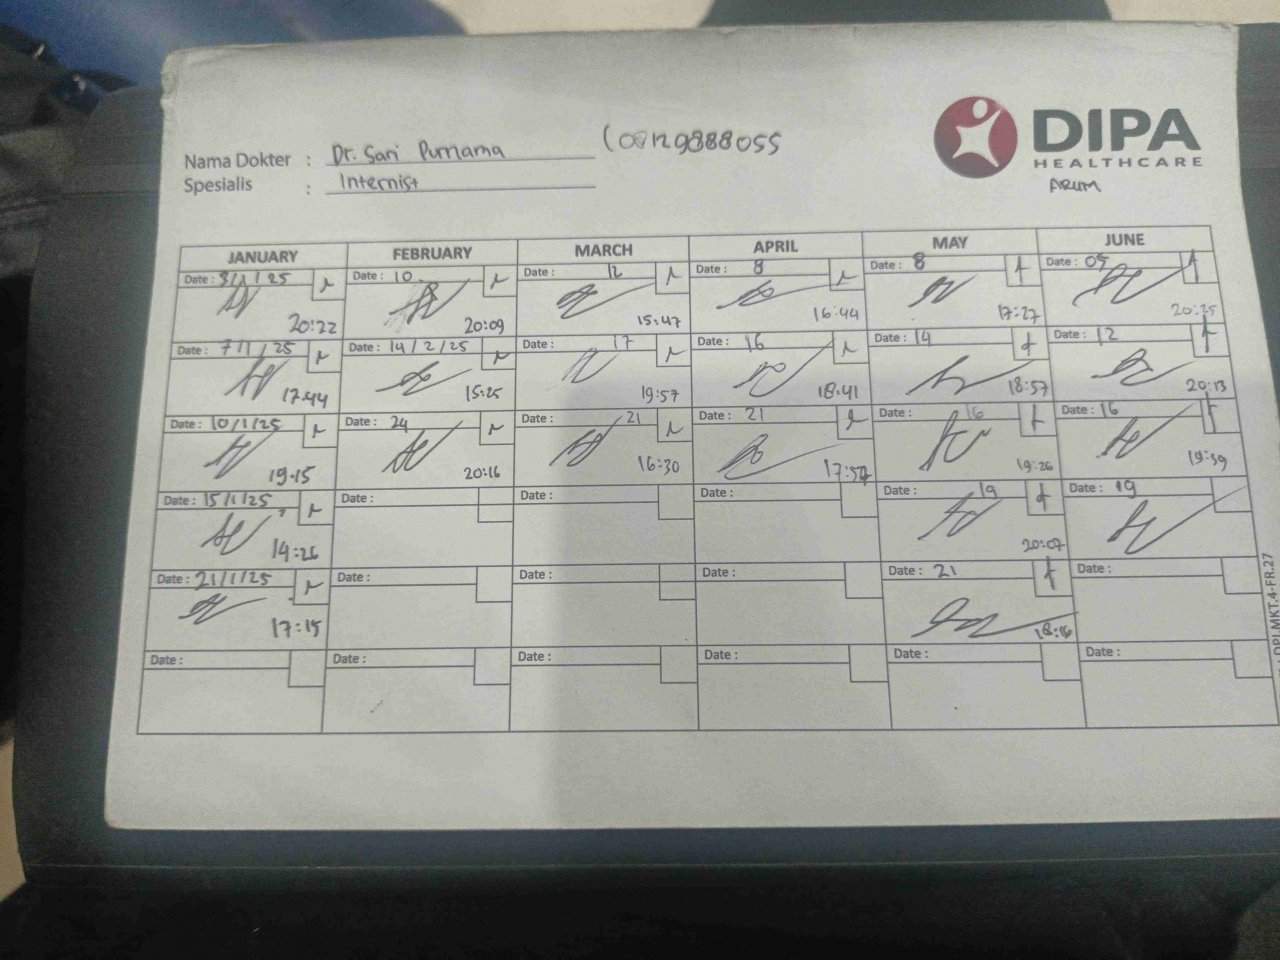 DIPA
HEALTHCARE
ARUM
Nama Dokter : Dr. Sari Purnama
Spesialis : Internist
JANUARY FEBRUARY MARCH APRIL MAY JUNE
Date : 3/1/25 Date : 10 Date : 12 Date : 8 Date : 8 Date : 05
20:22 20:09 15:47 16:44 17:27 20:25
Date : 7/1/25 Date : 14/2/25 Date : 17 Date : 16 Date : 14 Date : 12
17:44 15:25 19:57 18:41 18:57 20:13
Date : 10/1/25 Date : 24 Date : 21 Date : 21 Date : 16 Date : 16
19.15 20:16 16:30 19:26 19:39
Date : 15/1/25 Date : Date : Date : Date : 19 Date : 19
14:26 20:07
Date : 21/1/25 Date : Date : Date : Date : 21 Date :
17:15 18:16
Date : Date : Date : Date : Date : Date :